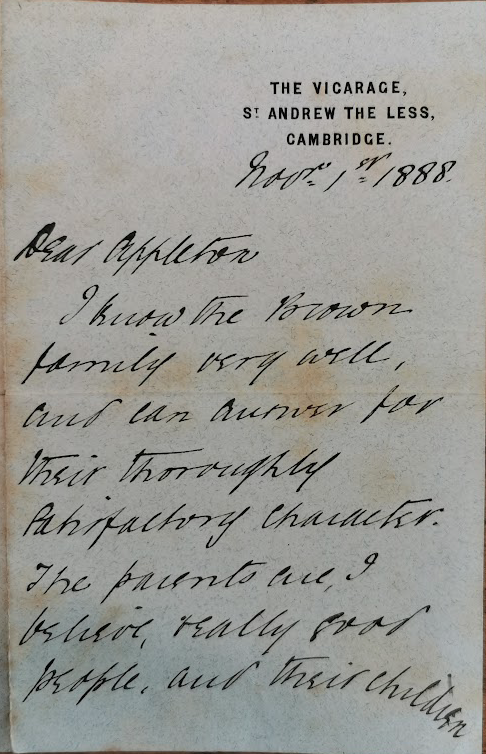 THE VICARAGE,
ST ANDREW THE LESS,
CAMBRIDGE.
Novr. 1st 1888.
Dear Appleton
I know the Brown
family very well,
and can answer for
their thoroughly
satisfactory character.
The parents are, I
believe, really good
people, and their children